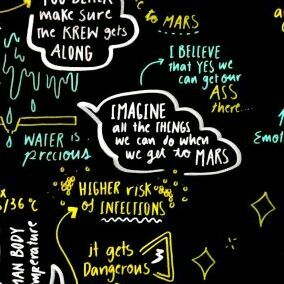 YOU BETTER
make sure
the KREW gets
ALONG
to MARS
I BELIEVE
that YES we
can get our
ASS
there....
IMAGINE
all the THINGS
we can do when
we get to MARS
WATER is
precious
Emoti
HIGHER risk
of INFECTIONS
/36°C
MAN BODY
mperature
it gets
Dangerous